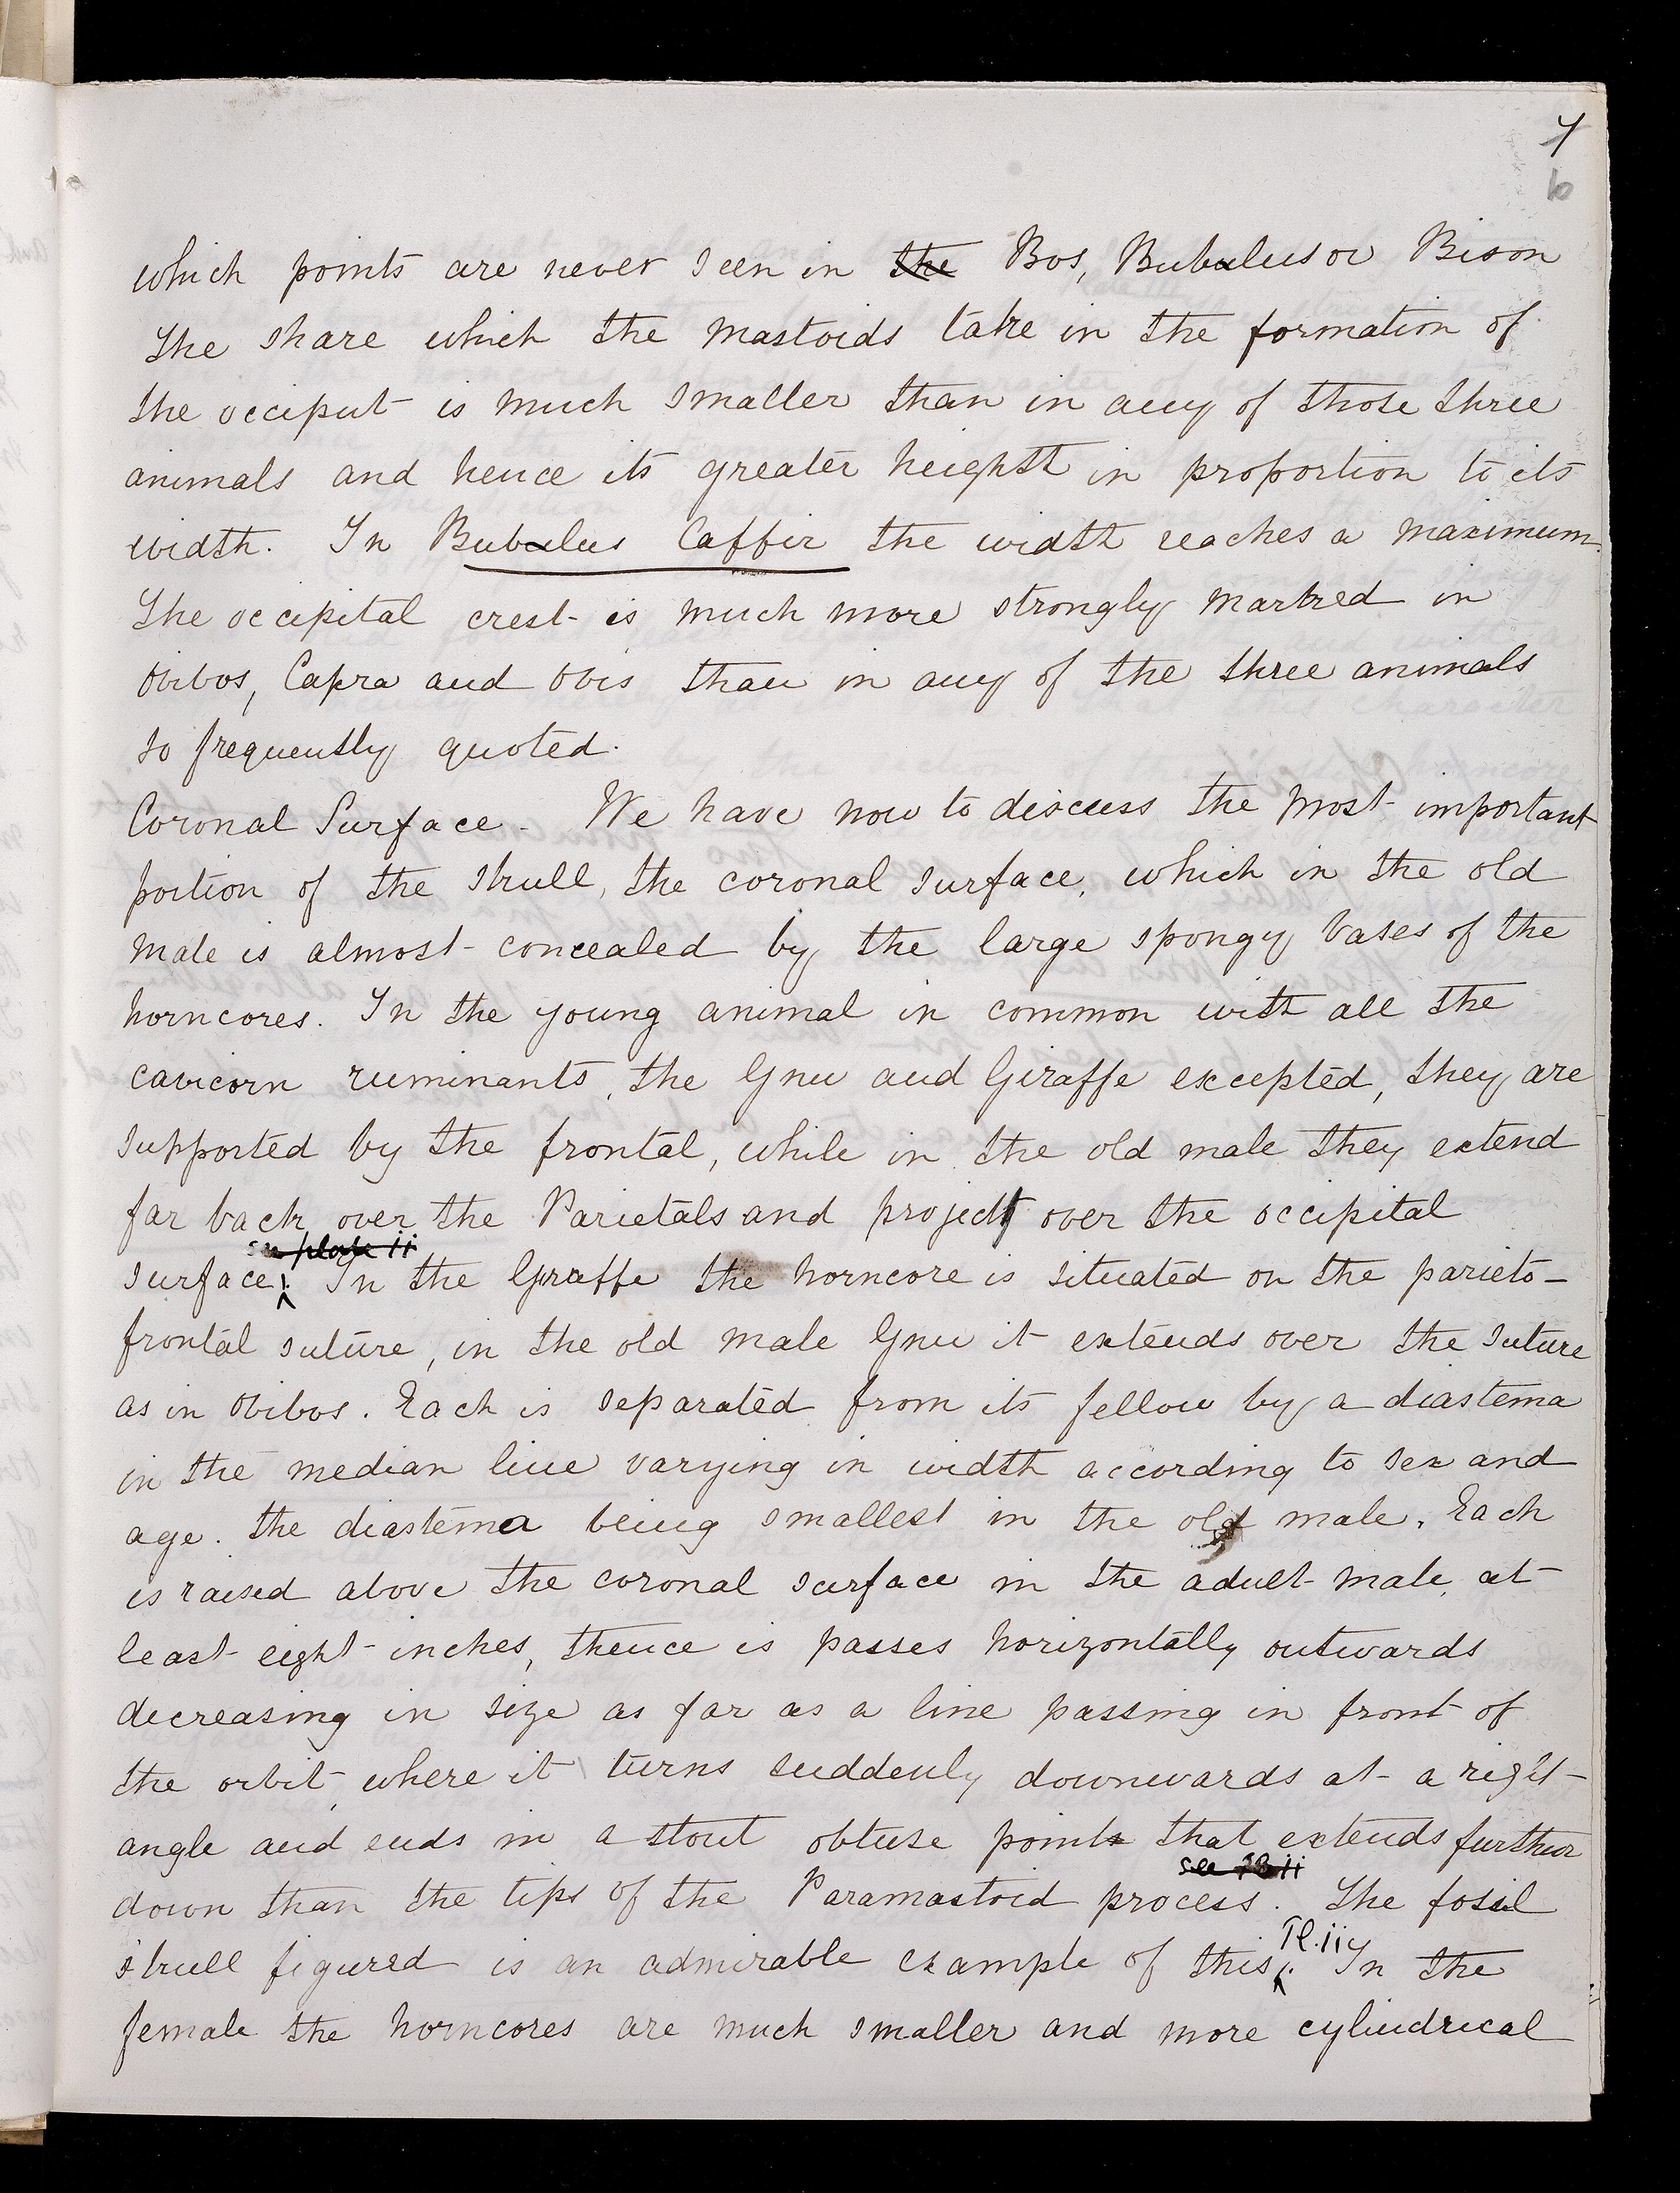 7
6
which points are never seen in the Bos, Bubalus or Bison
The share which the mastoids take in the formation of
the occiput is much smaller than in any of those three
animals and hence its greater height in proportion to its
width. In Bubalus Caffir the width reaches a maximum.
The occipital crest is much more strongly marked in
Ovibos, Capra and Ovis than in any of the three animals
so frequently quoted.
Coronal Surface. We have now to discuss the most important
portion of the skull, the coronal surface, which in the old
male is almost concealed by the large spongy bases of the
horncores. In the young animal in common with all the
cavicorn ruminants, the Gnu and Giraffe excepted, they are
supported by the frontal, while in the old male they extend
far back over the Parietals and project over the occipital
plate ii
surface. In the Giraffe the horncore is situated on the parieto-
frontal suture, in the old male Gnu it extends over the suture
as in Ovibos. Each is separated from its fellow by a diastema
in the median line varying in width according to sex and
age. the diastema being smallest in the old male. Each
is raised above the coronal surface in the adult male, at
least eight inches, thence is passes horizontally outwards
decreasing in size as far as a line passing in front of
the orbit, where it turns suddenly downwards at a right
angle and ends in a stout obtuse point that extends further
see Pl ii
down than the tips of the Paramastoid process. The fossil
Pl. ii
skull figured is an admirable example of this. In the
female the horncores are much smaller and more cylindrical